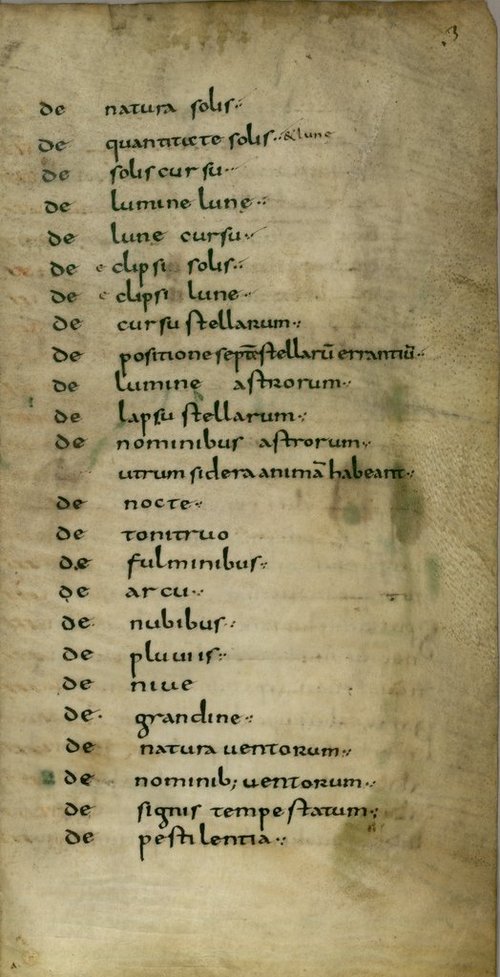 3
de natura solis
de quantitate solis & lune
de solis cursu
de lumine lune
de lune cursu
de eclipsi solis
de eclipsi lune
de cursu stellarum
de positione septē stellarū errantiū
de lumine astrorum
de lapsu stellarum
de nominibus astrorum
utrum sidera animā habeant
de nocte
de tonitruo
de fulminibus
de arcu
de nubibus
de pluviis
de niue
de grandine
de natura uentorum
de nominib; uentorum
de signis tempestatum
de pestilentia